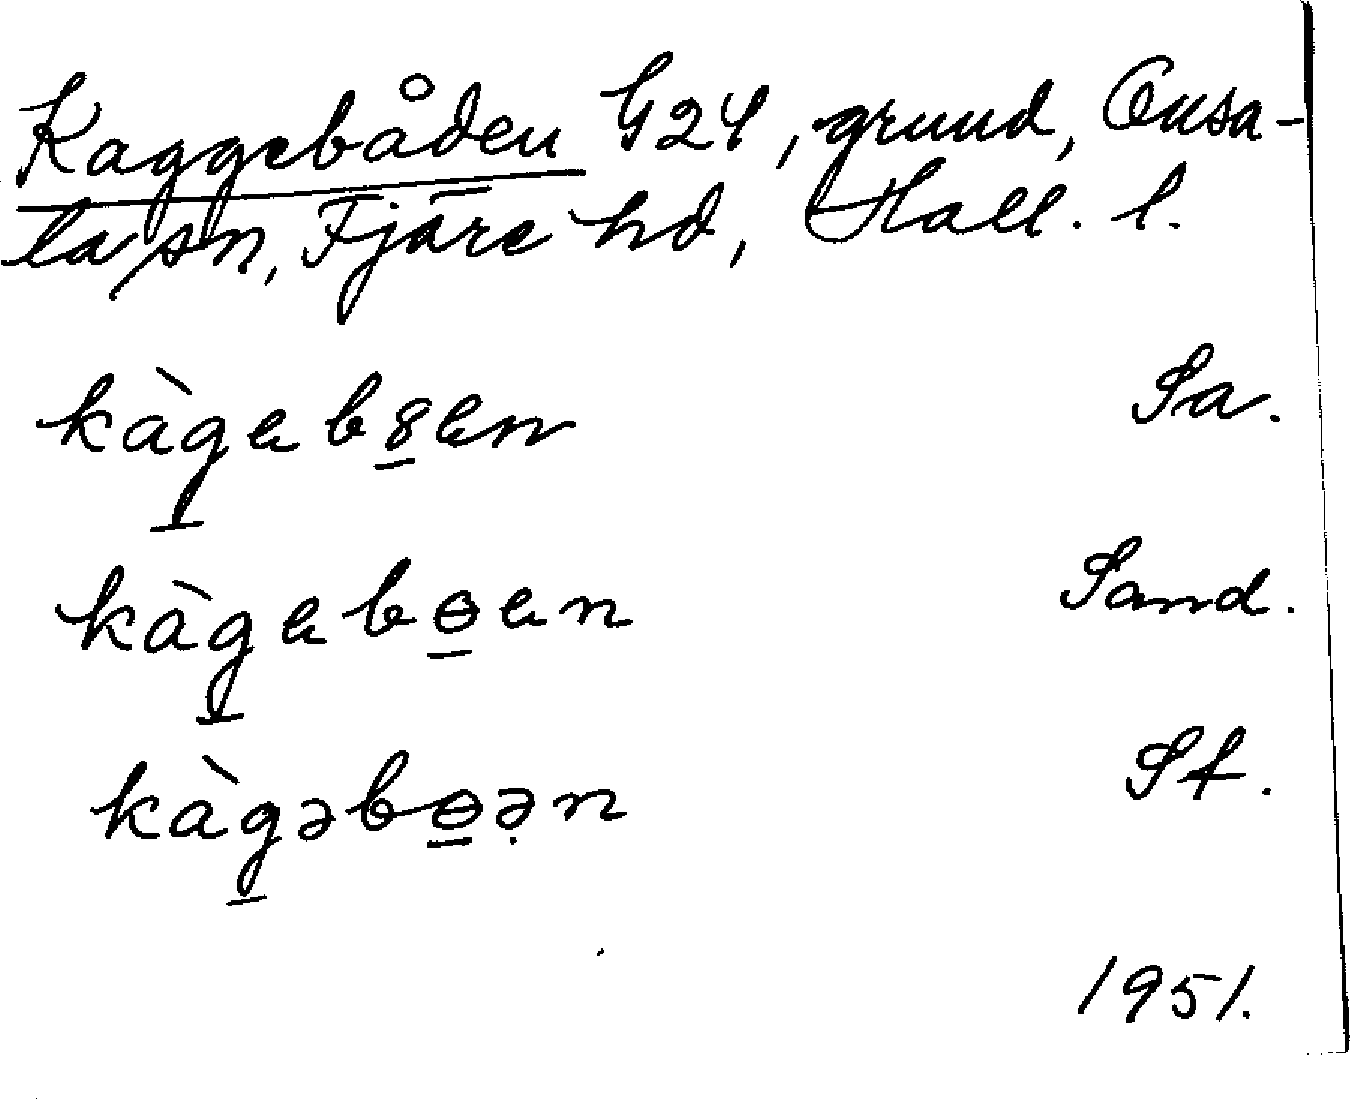 Kaggebåden G24, grund, Onsa-
la sn, Fjäre hd, Hall. l.
kàgebȣ̱en Sa.
kàgebɵ̱en Sand.
kàgəbɵ̱ə̣n St.
1951.